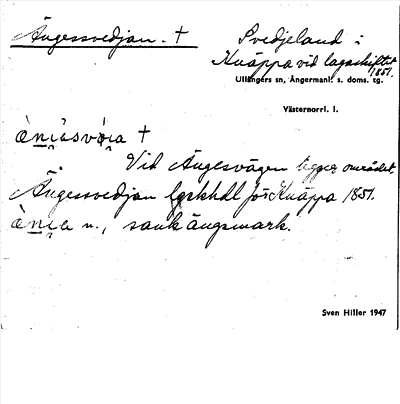 Ängessvedjan. †
Svedjeland i
Knäppa vid lagaskiftet
1851.
Ullångers sn, Ångermanl. s. doms. tg.
Västernorrl. l.
†
Vid Ängesvägen ligger området
Ängessvedjan lgskhdl för Knäppa 1851.
n., sank ängsmark.
Sven Hiller 1947